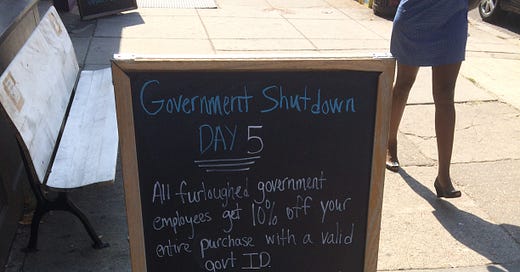 Government Shutdown
DAY 5
All furloughed government
employees get 10% off your
entire purchase with a valid
govt ID.